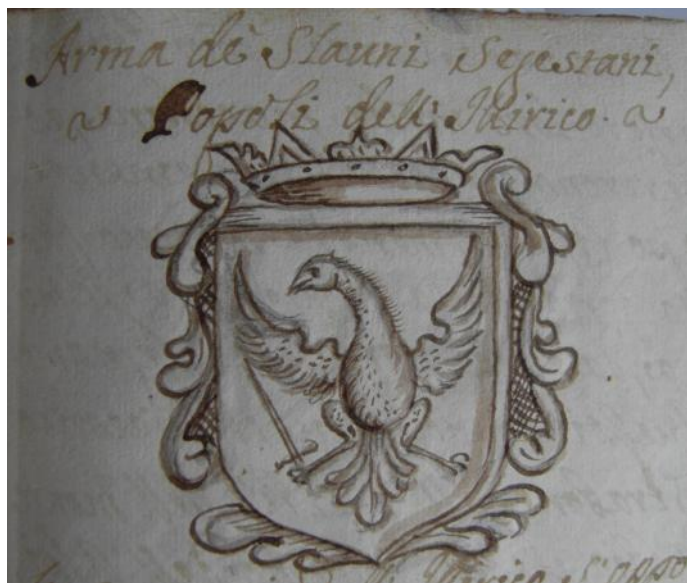 Arma de Slauni Segestani,
~ Popoli dell' Ilirico. ~